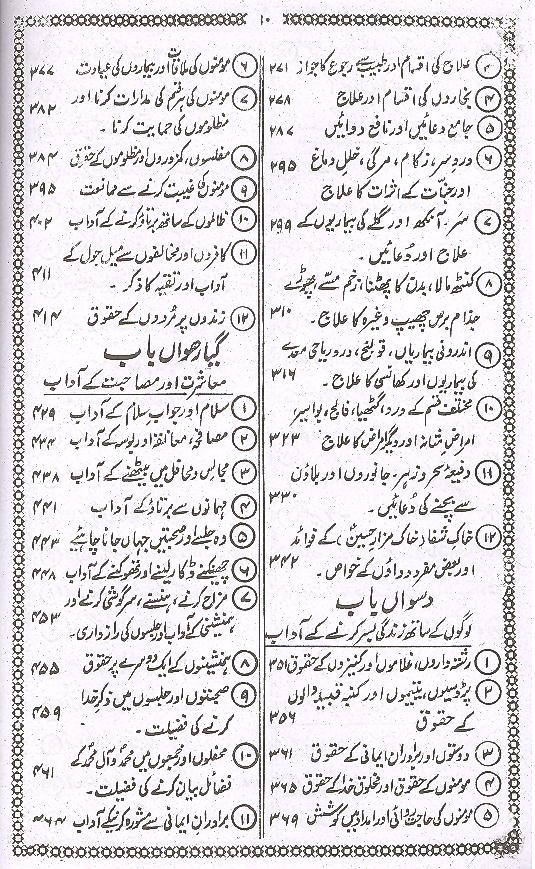 ۱۰
۳ علاج کی اقسام اور طبیب سے رجوع کا جواز ۲۷۱
۴ بخاروں کی اقسام اور علاج ۲۷۸
۵ جامع دعائیں اور نافع دوائیں ۲۸۷
۶ دردِ سر، زکام، مرگی، خللِ دماغ ۲۹۵
اور جنّات کے اثرات کا علاج
۷ سر۔ آنکھ اور گلے کی بیماریوں کے ۲۹۹
علاج اور دُعائیں۔
۸ کنٹھ مالا، بدن کا پھٹنا، زخم مسّے پھوڑے
جذام برص چھیپ وغیرہ کا علاج۔ ۳۱۰
۹ اندرونی بیماریاں، قولنج، درد ریاحی معدے
کی بیماریوں اور کھانسی کا علاج۔ ۳۱۶
۱۰ مختلف قسم کے درد، گٹھیا، فالج، بواسیر
امراضِ مثانہ اور دیگر امراض کا علاج ۳۲۳
۱۱ دفیعۂ سحر و زہر۔ جانوروں اور بلاؤں
سے بچنے کی دُعائیں۔ ۳۳۰
۱۲ خاکِ شفا (خاک مزارِ حسینؑ) کے فوائد
اور بعض مفرد دواؤں کے خواص۔ ۳۴۲
دسواں باب
لوگوں کے ساتھ زندگی بسر کرنے کے آداب
۱ رشتہ داروں، غلاموں اور کنیزوں کے حقوق ۳۵۱
۲ پڑوسیوں، یتیموں اور کنبہ قبیلہ والوں
کے حقوق ۳۵۶
۳ دوستوں اور برادرانِ ایمانی کے حقوق ۳۶۱
۴ مومنوں کے حقوق اور مخلوقِ خدا کے حقوق ۳۶۵
۵ مومنوں کی حاجت روائی اور امداد میں کوشش ۳۶۹
۶ مومنوں کی ملاقات اور بیماروں کی عیادت ۳۷۷
۷ مومنوں کی ہر قسم کی مدارات کرنا اور
مظلوموں کی حمایت کرنا۔ ۳۸۲
۸ مفلسوں، کمزوروں اور مظلوموں کے حقوق ۳۸۴
۹ مومنوں کا غیبت کرنے سے ممانعت ۳۹۵
۱۰ ظالموں کے ساتھ برتاؤ کرنے کے آداب ۴۰۲
۱۱ کافروں اور مخالفوں سے میل جول کے
آداب اور تقیہ کا ذکر۔ ۴۱۱
۱۲ زندوں پر مُردوں کے حقوق ۴۱۴
گیارھواں باب
معاشرت اور مصاحبت کے آداب
۱ سلام اور جوابِ سلام کے آداب ۴۲۹
۲ مصافحہ، معانقہ اور بوسہ کے آداب ۴۳۴
۳ مجالس و محافل میں بیٹھنے کے آداب ۴۳۸
۴ مہمانوں سے برتاؤ کے آداب ۴۴۱
۵ وہ جلسے اور صحبتیں جہاں جانا چاہئے ۴۴۳
۶ چھینکنے ڈکار لینے اور تھوکنے کے آداب ۴۴۸
۷ مزاح کرنے، ہنسنے، سرگوشی کرنے اور
ہمنشینی کے آداب اور جلسوں کی رازداری۔ ۴۵۳
۸ ہمنشینوں کے ایک دوسرے پر حقوق ۴۵۵
۹ صحبتوں اور جلسوں میں ذکرِ خدا
کرنے کی فضیلت۔ ۴۵۹
۱۰ محفلوں اور مجمعوں میں محمدؐ و آلِ محمدؐ کے
فضائل بیان کرنے کی فضیلت۔ ۴۶۱
۱۱ برادرانِ ایمانی سے مشورہ کرنیکے آداب ۴۶۴